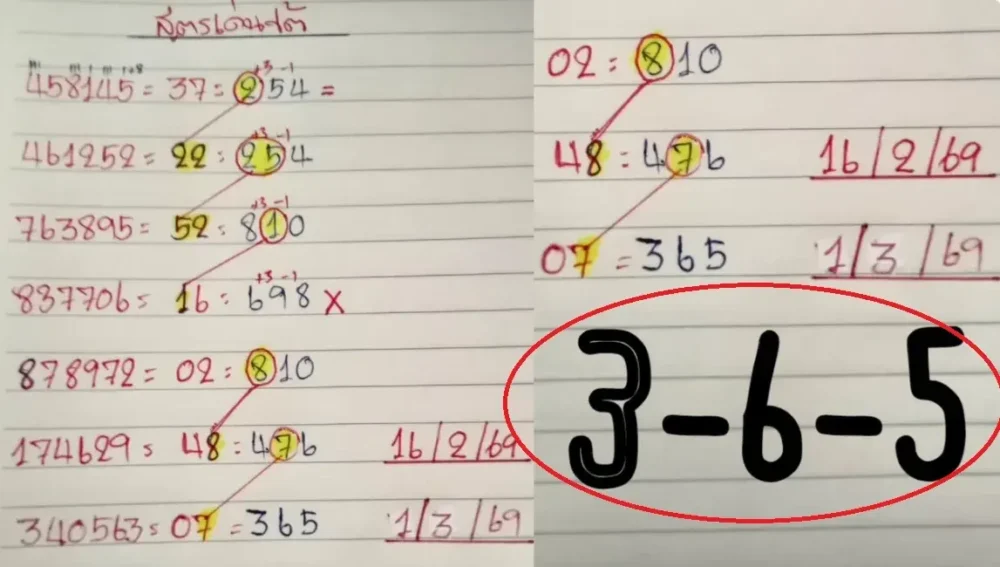 สูตรเด่นใต้
458145 = 37 = 254 =
+3 -1
461252 = 22 : 254
+3 -1
763895 = 52 = 810
+3 -1
837706 = 16 : 698 X
878972 = 02 : 810
174629 = 48 : 476 16/2/69
340563 = 07 = 365 1/3/69
02 : 810
48 : 476 16/2/69
07 = 365 1/3/69
3-6-5